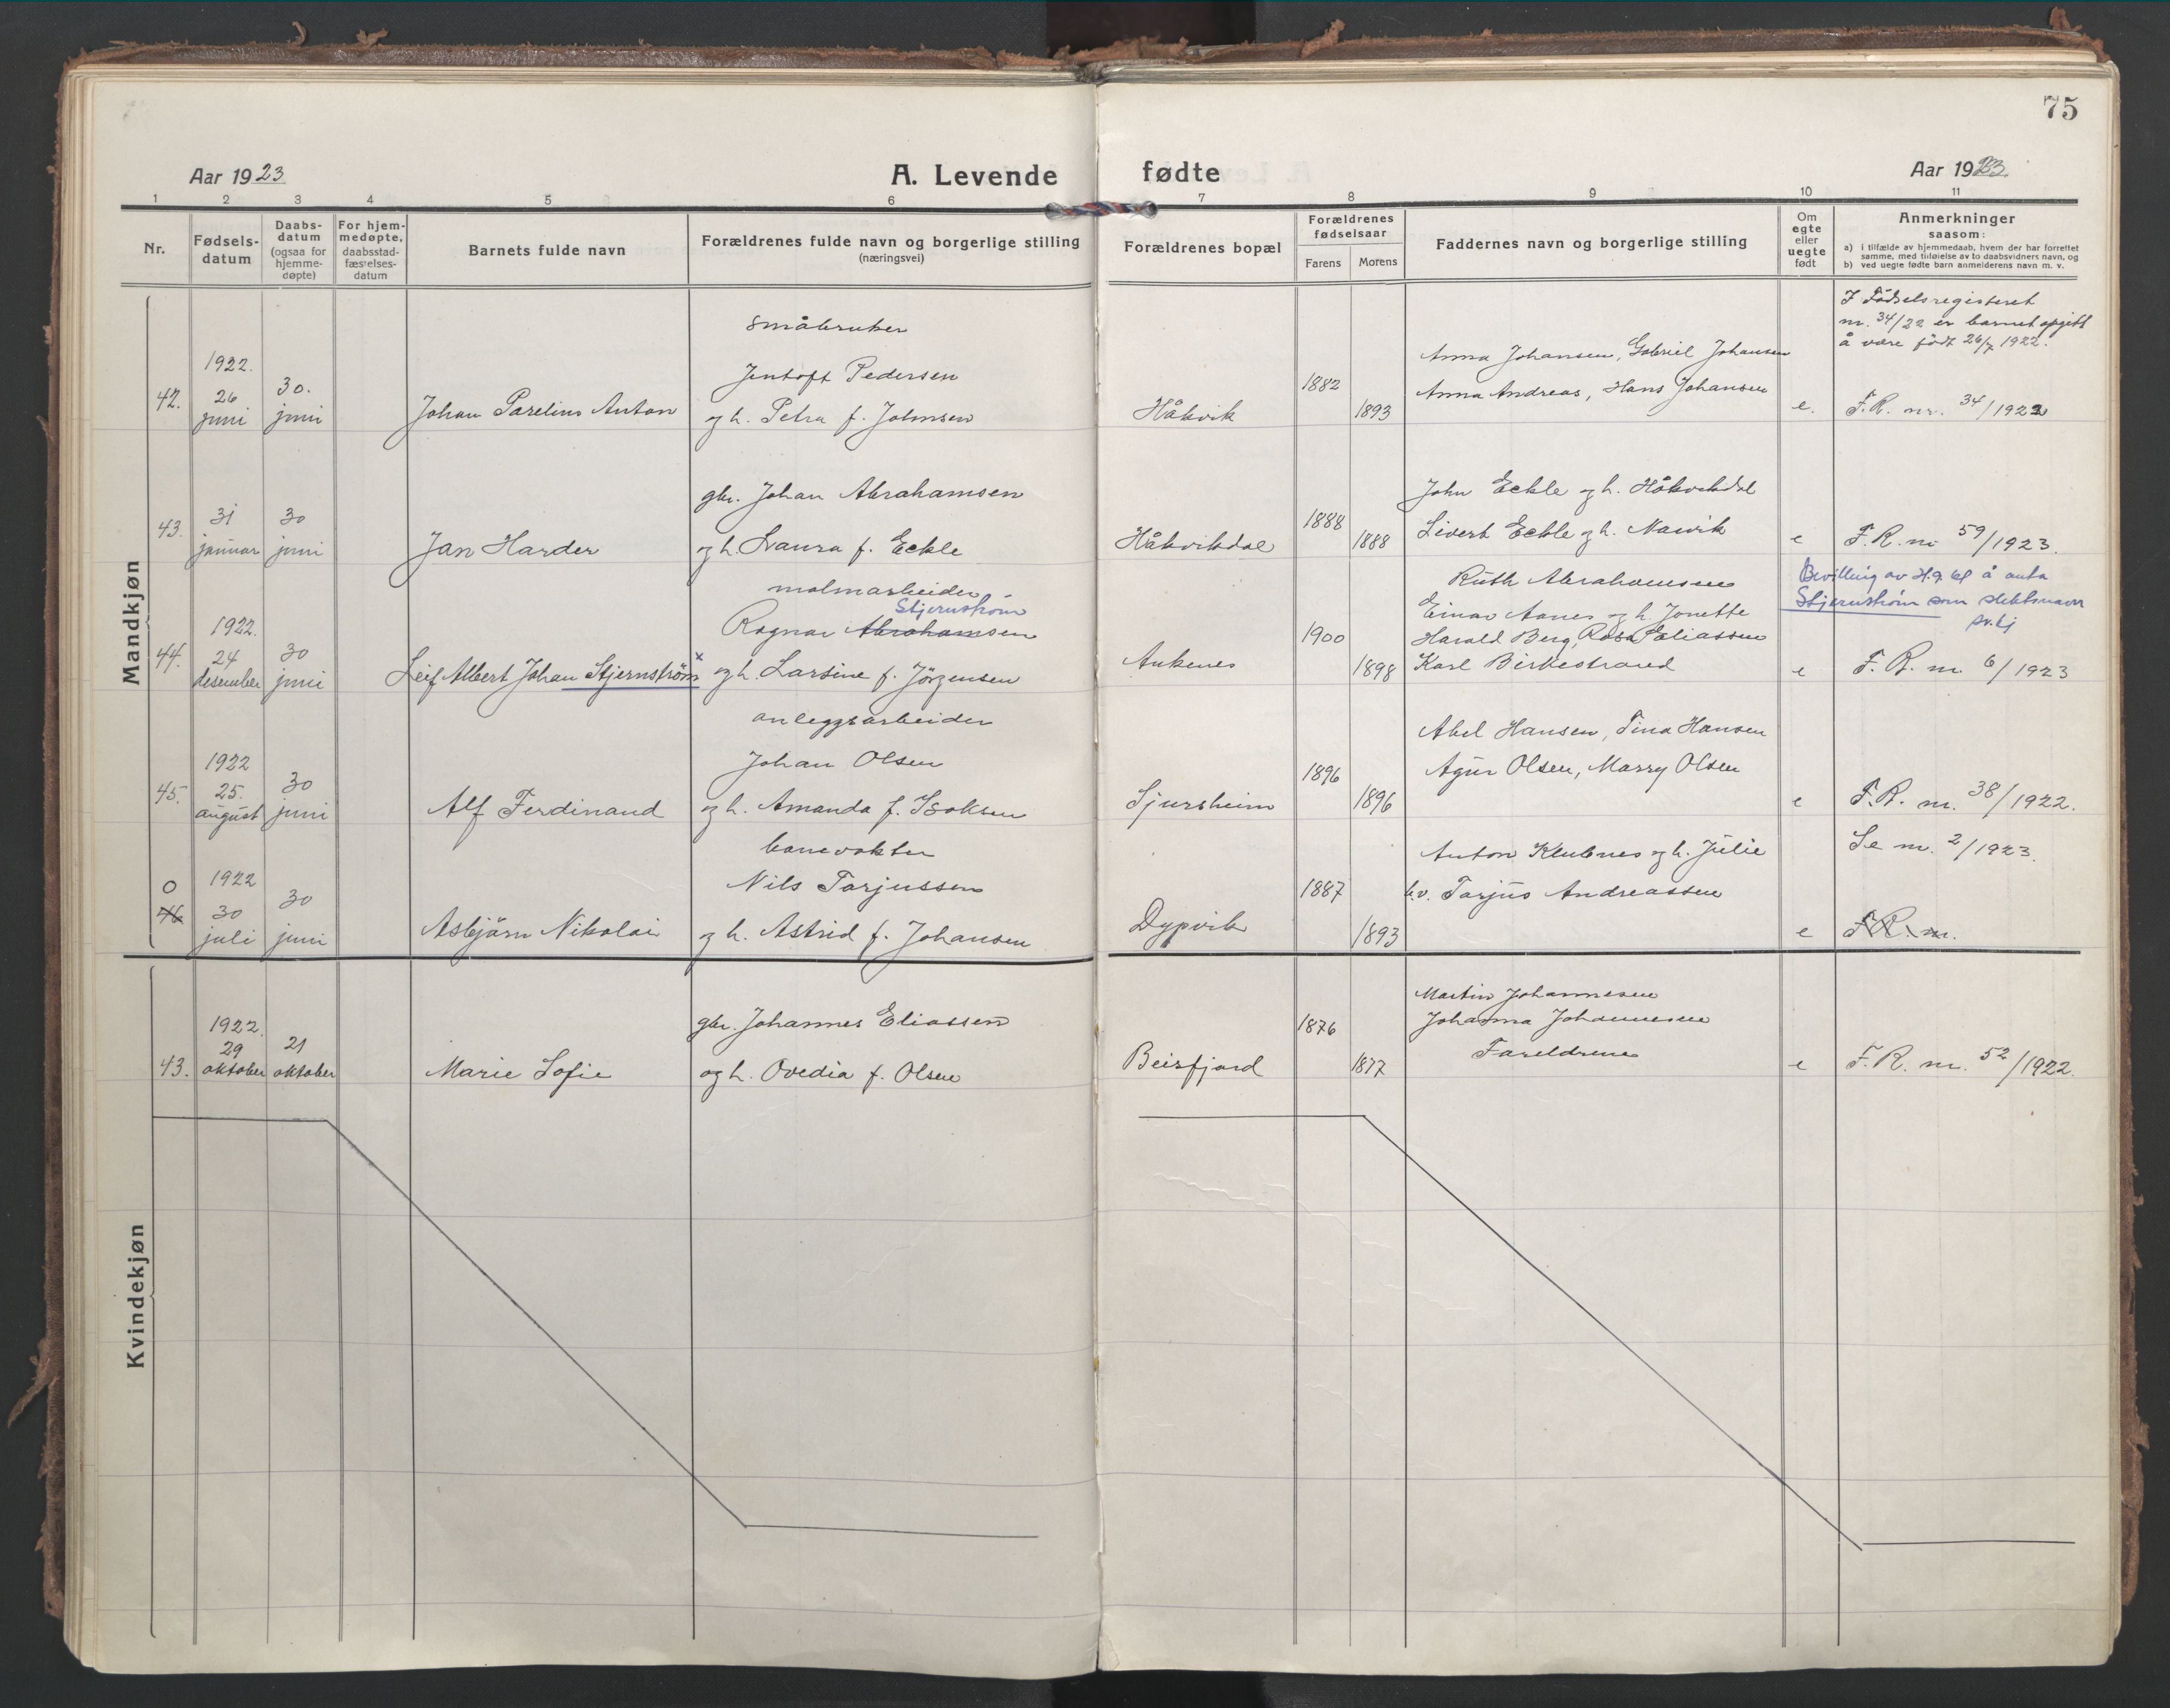 75
Aar 1923
A. Levende fødte
Aar 1923.
1 2 3 4 5 6 7 8 9 10 11
Nr.
Fødsels-
datum
Daabs-
datum
(ogsaa for
hjemme-
døpte)
For hjem-
medøpte,
daabsstad-
fæstelses-
datum
Barnets fulde navn
Forældrenes fulde navn og borgerlige stilling
(næringsvei)
Forældrenes bopæl
Forældrenes
fødselsaar
Farens Morens
Faddernes navn og borgerlige stilling
Om
egte
eller
uegte
født
Anmerkninger
saasom:
a) i tilfælde av hjemmedaab, hvem der har forrettet
samme, med tilføielse av to daabsvidners navn, og
b) ved uegte fødte barn anmelderens navn m. v.
Mandkjøn
42.
1922.
26
juni
30.
juni
Johan Parelius Anton
småbruker
Jentoft Pedersen
og h. Petra f. Johnsen
Håkvik
1882
1893
Anna Johansen, Gabriel Johansen
Anna Andreas, Hans Johansen
e.
I Fødselsregisteret
nr. 34/22 er barnet opgitt
å være født 26/7 1922.
F.R. nr. 34/1922
43.
31
januar
30
juni
Jan Harder
gbr. Johan Abrahamsen
og h. Laura f. Eckle
Håkvikdal
1888
1888
John Eckle og h. Håkvikdal
Sivert Eckle og h. Narvik
e
F.R. nr 59/1923.
44.
1922.
24
desember
30
juni
Leif Albert Johan Stjernström x
malmarbeider
Stjernström
Ragnar Abrahamsen
og h. Larsine f. Jörgensen
Ankenes
1900
1898
Ruth Abrahamsen
Einar Aanes og h. Jonette
Harald Berg, Rosa Eliassen
Karl Birkestrand
e
Bevilling av å anta
Stjernström som slektsnavn
F.R. nr. 6/1923
45.
1922
25.
august
30
juni
Alf Ferdinand
anleggsarbeider
Johan Olsen
og h. Amanda f. Isaksen
Sjursheim
1896
1896
Abel Hansen, Tina Hansen
Agur Olsen, Marry Olsen
e
F.R. nr. 38/1922.
0
46
1922
30
juli
30
juni
Asbjörn Nikolai
banevokter
Nils Tarjussen
og h. Astrid f. Johansen
Dypvik
1887
1893
Anton Klubnes og h. Julie
b.v. Tarjus Andreassen
e
Se nr. 2/1923.
F.R. nr.
Kvindekjøn
43.
1922.
29
oktober
21
oktober
Marie Sofie
gbr. Johannes Eliassen
og h. Ovedia f. Olsen
Beisfjord
1876
1877
Martin Johannesen
Johanna Johannesen
Foreldrene
e
F.R. nr. 52/1922.